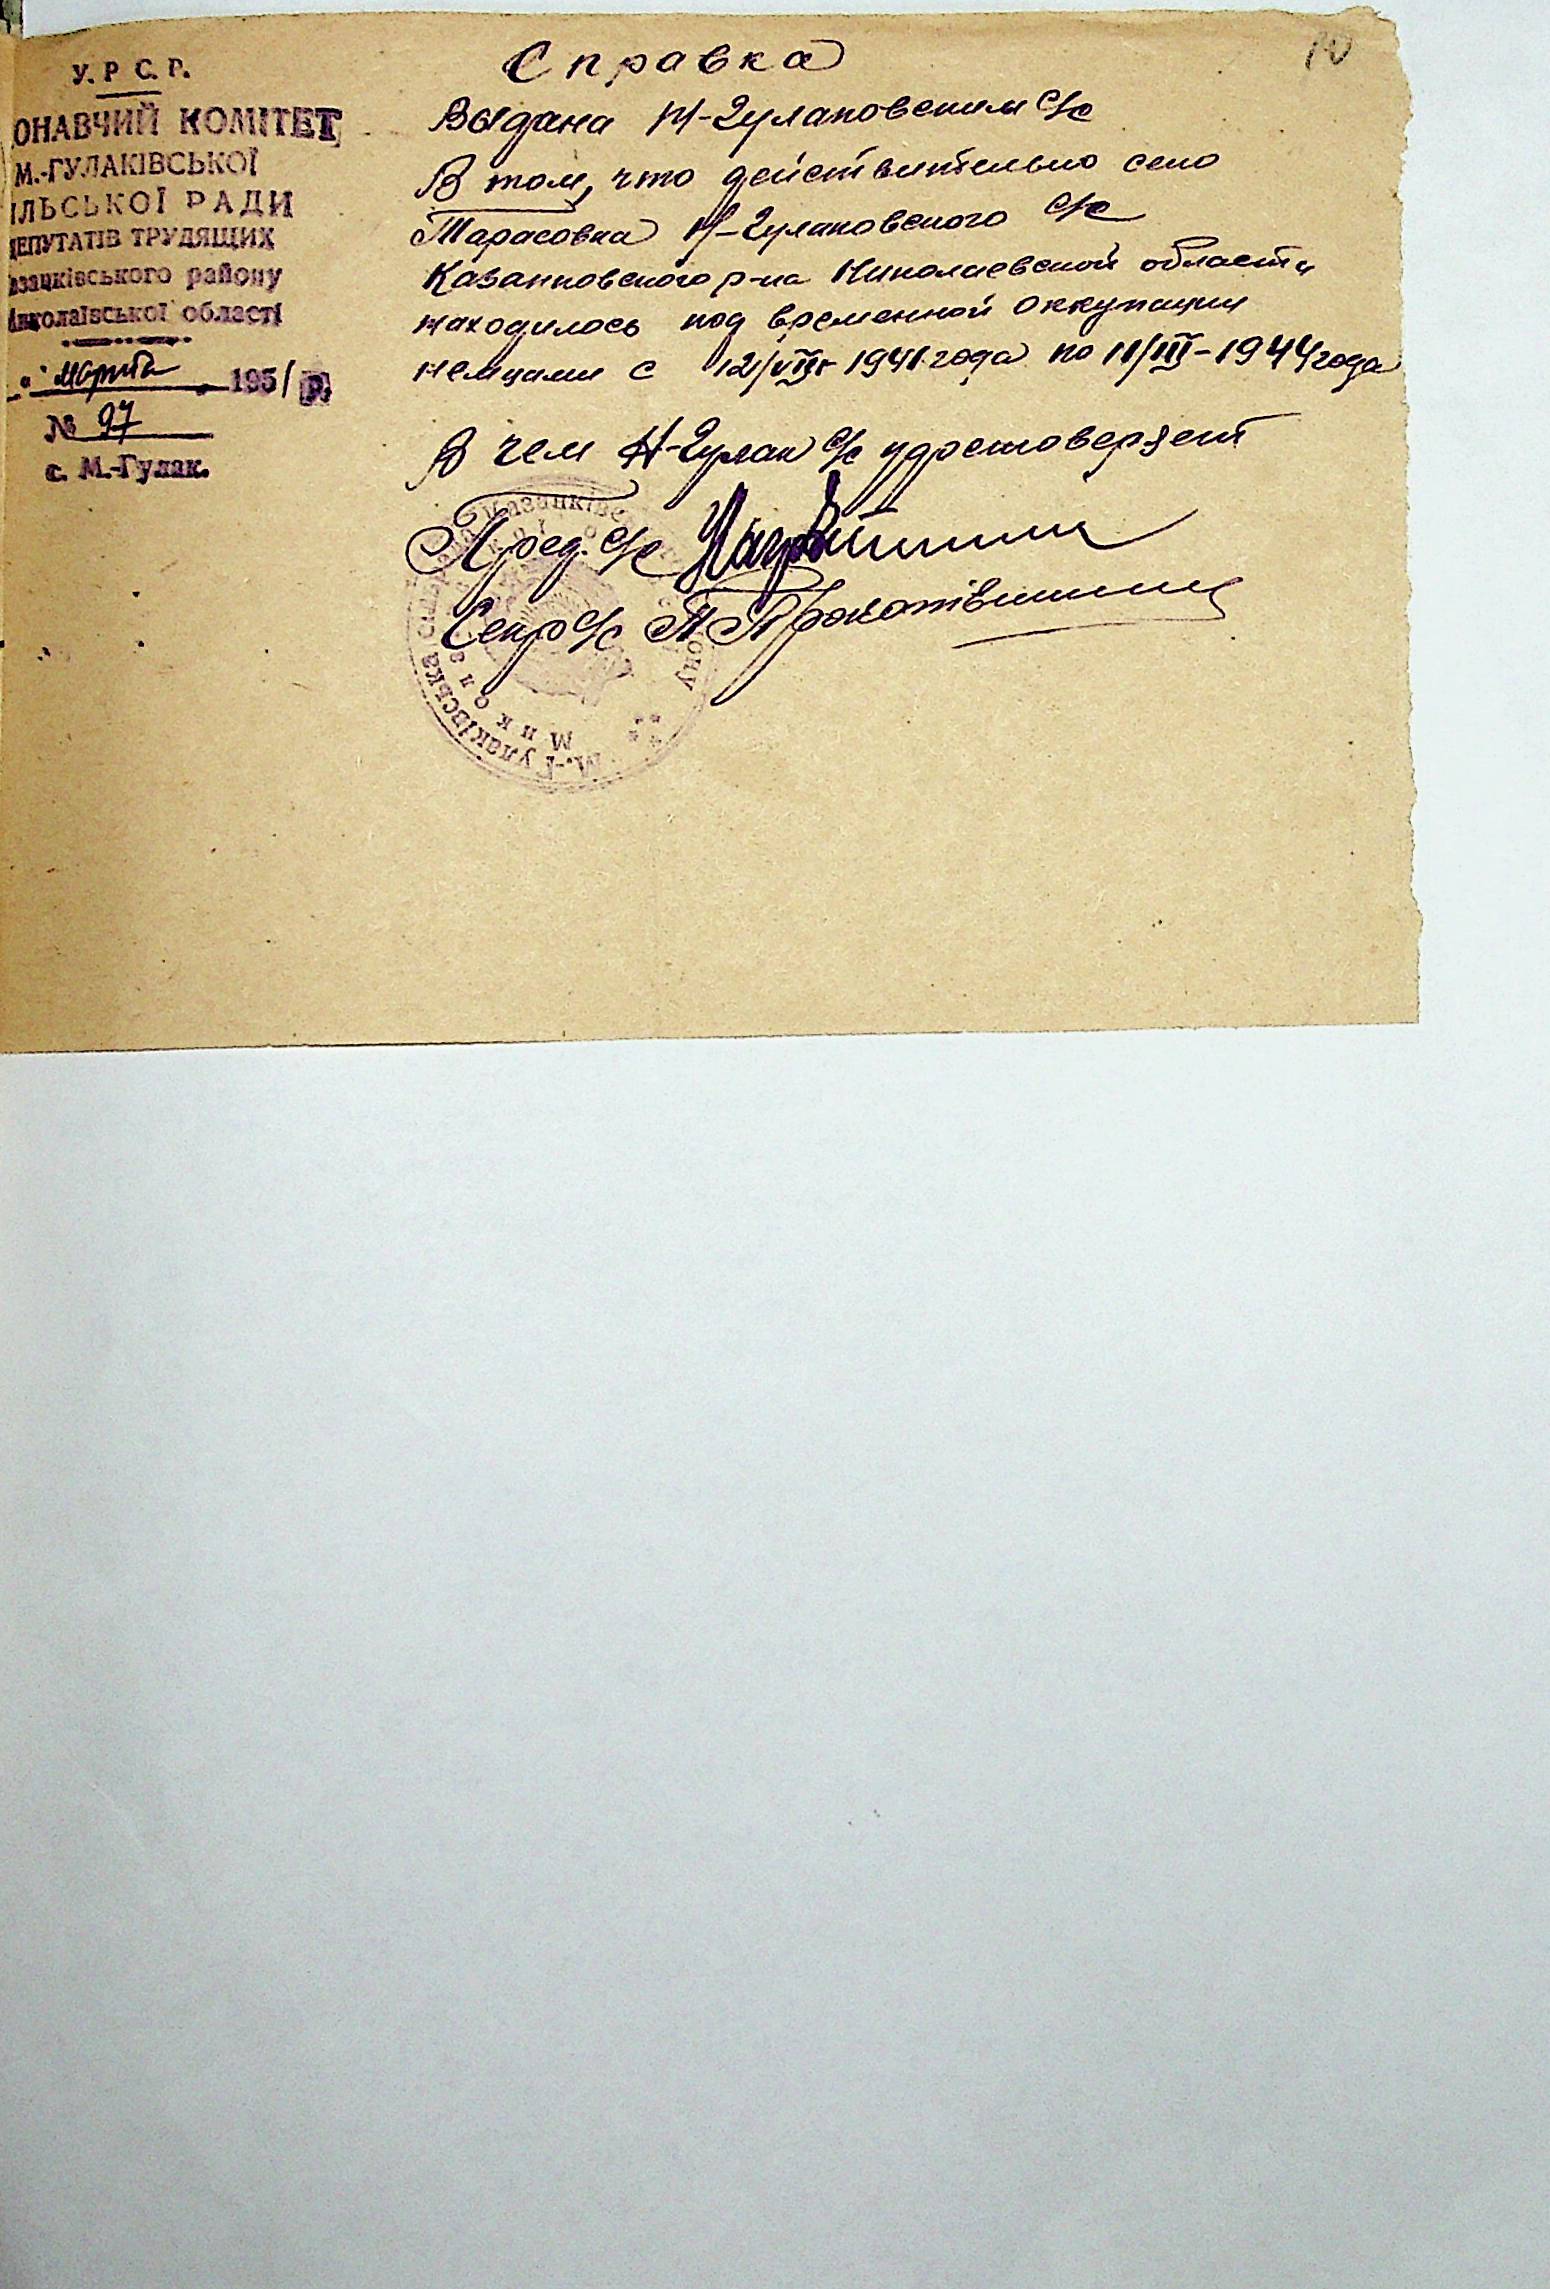 У. Р. С. Р.
ОНАВЧИЙ КОМІТЕТ
М.-ГУЛАКІВСЬКОЇ
ІЛЬСЬКОЇ РАДИ
ДЕПУТАТІВ ТРУДЯЩИХ
азацківського району
Миколаївської області
" марта 1951 р.
№ 97
с. М.-Гулак.
10
Справка
Выдана М-Гулаковским с/с
В том, что действительно село
Тарасовка М-Гулаковского с/с
Казанковского р-на Николаевской области
находилось под временной оккупации
немцами с 12/VIII 1941 года по 11/III-1944 года
В чем М-Гулак с/с удостоверяет
Пред. с/с
Секр с/с
М.-Гулаківська